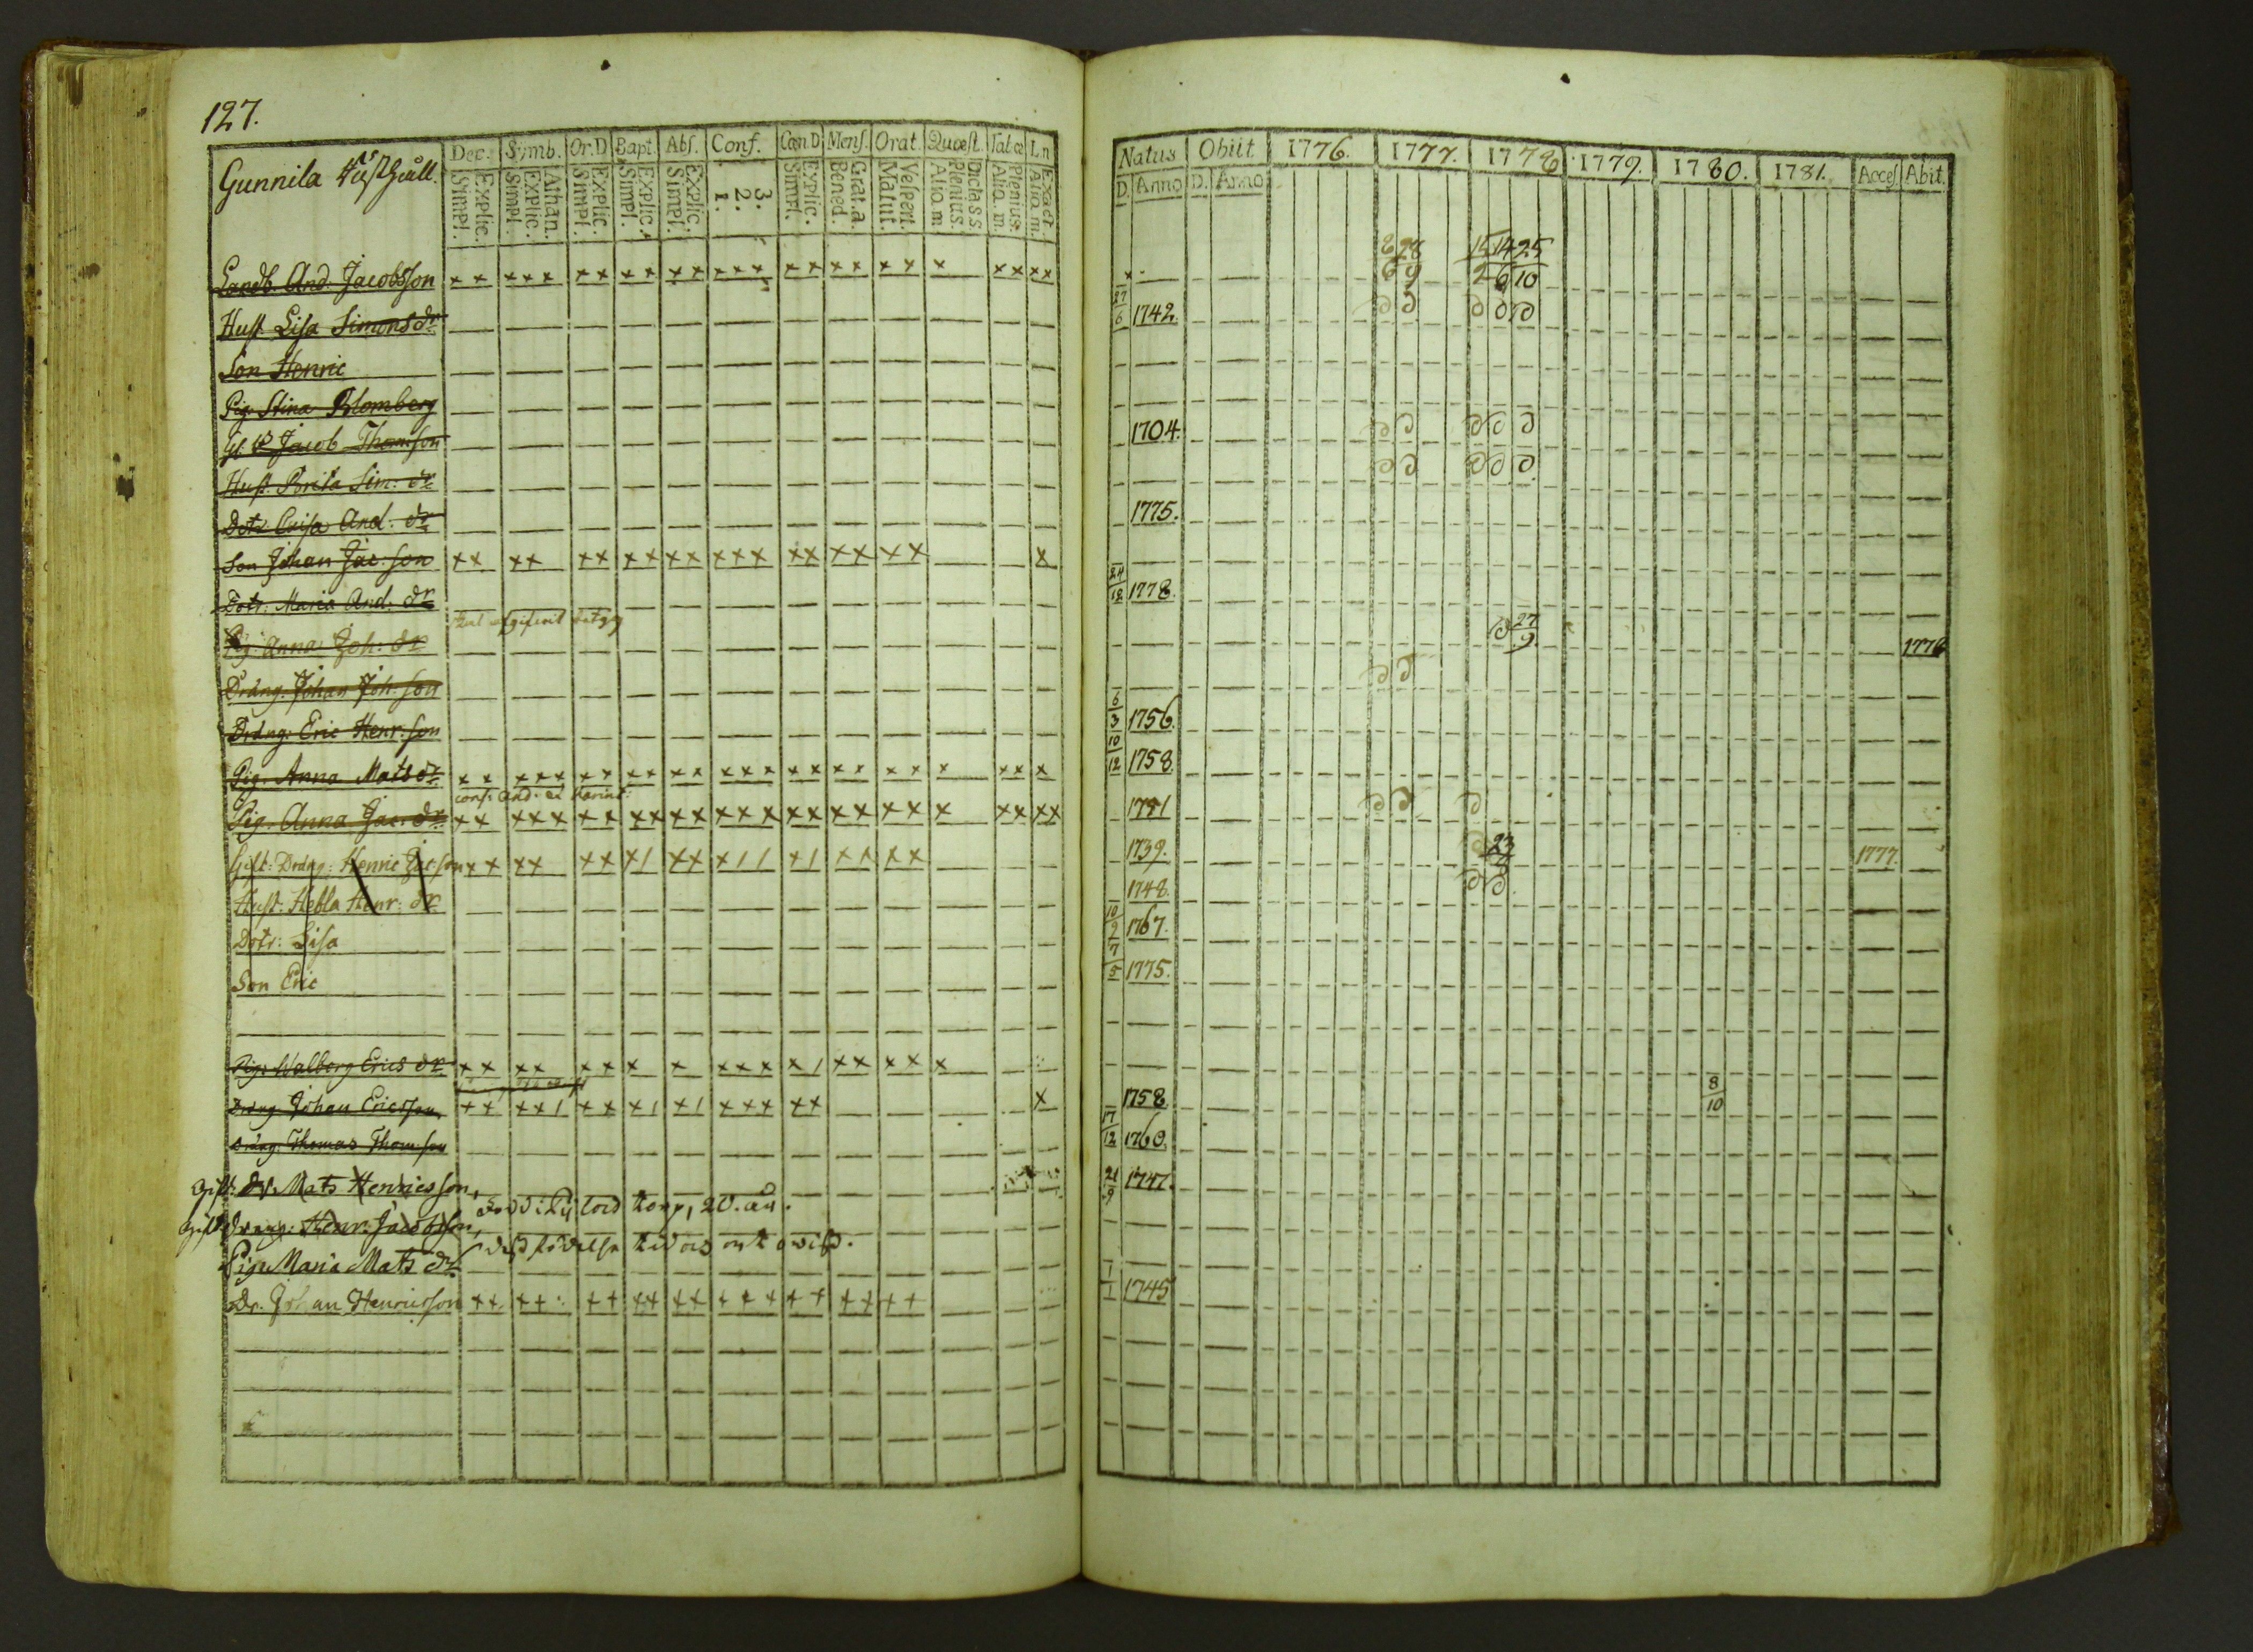 127.
Gunnila
Dec. Symb. Or.D Bapt. Abs. Conf. Cœn.D Mens. Orat. Quæst. Tal.æ L.n
Simpl. Explic. Simpl. Explic. Athan. Simpl. Explic. Simpl. Explic. Simpl. Explic. 1. 2. 3. Simpl. Explic. Bened. Grat.a Matut. Vespert. Alio.m Plenius. Dictass Alio.m. Plenius. Alio.m. Exact.
Landb. And. Jacobsson x x x x x x x x x x x x x x x x x x x x x x x x x
Hust. Lisa Simonsdr
Son Henric
Pig. Stina Blomberg
Jacob Thomson
Hust. Brita Sim: dr
Dotr. Caisa And: dr
Son Johan Jac: son x x x x x x x x x x x x x x x x x x x x
Dotr: Maria And: dr
Pig: Anna Joh: dr
Dräng. Johan Joh: son
Dräng: Eric Henr: son
Pig. Anna Matsdr x x x x x x x x x x x x x x x x x x x x x x x
Pig. Anna Jac: dr x x x x x x x x x x x x x x x x x x x x x x x x x
Gift: Dräng: Henric Jac: son x x x x x x x / x x x / / x / x x x x
Hust: Hebla Henr: dr
Dotr: Lisa
Son Eric
Pig: Walborg Erics dr x x x x x x x x x x x x / x x x x x
Dräng Johan Ericsson x x x x / x x x / x / x x x x x x
Dräng: Thomas Thomson
Gift: dr. Mats Henricsson,
Gift dräng: Henr: Jacobsson,
Pig: Maria Mats dr
Dr. Johan Henricsson x x x x x x x x x x x x x x x x x x x
Natus Obiit 1776. 1777. 1778 1779. 1780. 1781. Acces. Abit.
D. Anno D. Anno
8 28 15 14 25
6 9 2 6 10
27/6 1742.
1704.
1775.
24/12 1778.
27/9 1778
6/3 1756.
10/12 1758
1751
1739. 23 1777.
1748.
10/9 1767.
7/5 1775.
8/10
1758
17/12 1760.
21/9 1747.
1/1 1745